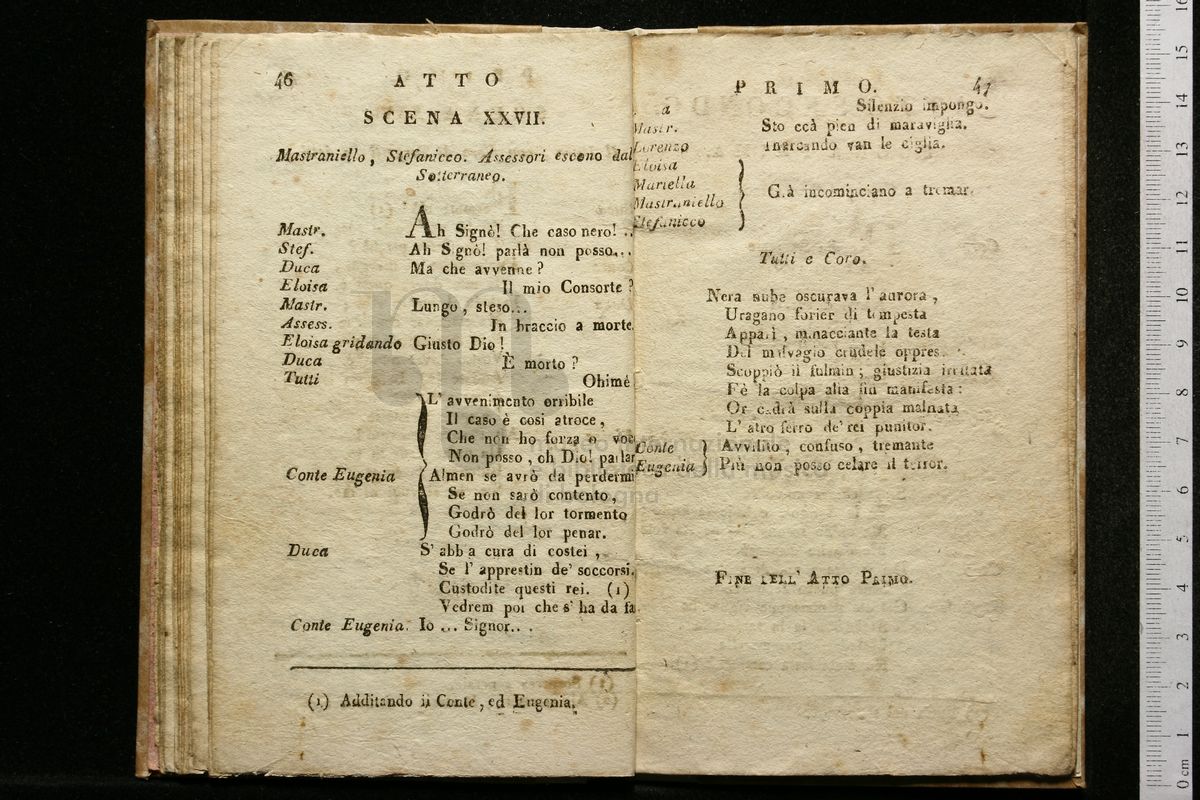 46 ATTO
SCENA XXVII.
Mastraniello, Stefanicco. Assessori escono dal
Sotterraneo.
Mastr. Ah Signò! Che caso nero! ..
Stef. Ah S gnò! parlà non posso...
Duca Ma che avvenne?
Eloisa Il mio Consorte?
Mastr. Lungo, steso...
Assess. In braccio a morte.
Eloisa gridando Giusto Dio!
Duca È morto?
Tutti Ohimé
L' avvenimento orribile
Il caso è cosi atroce,
Che non ho forza o voc
Non posso, oh Dio! parlar
Conte Eugenia Almen se avrò da perdermi
Se non sarò contento,
Godrò del lor tormento
Godrò del lor penar.
Duca S' abb a cura di costei,
Se l' apprestin de' soccorsi.
Custodite questi rei. (1)
Vedrem poi che s' ha da fa
Conte Eugenia. Io ... Signor...
(1) Additando il Conte, ed Eugenia.
PRIMO. 47
a Silenzio impongo.
Mastr. Sto ccà pien di maraviglia.
Lorenzo Inarcando van le ciglia.
Eloisa
Mariella
Mastraniello
Stefanicco
Già incominciano a tremar.
Tutti e Coro.
Nera nube oscurava l' aurora,
Uragano forier di tempesta
Apparì, minacciante la testa
Del malvagio crudele oppres
Scoppiò il fulmin; giustizia irritata
Fè la colpa alla fin manifesta:
Or cadrà sulla coppia malnata
L' atro ferro de' rei punitor.
Conte Eugenia Avvilito, confuso, tremante
Più non posso celare il terror.
FINE DELL' ATTO PRIMO.
16
15
14
13
12
11
10
9
8
7
6
5
4
3
2
1
0 cm